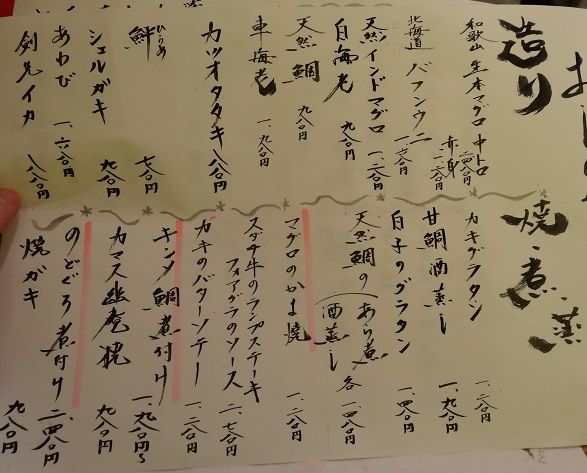 造り
和歌山 生本マグロ 中トロ 二、四〇〇円
赤身 一、二〇〇円
北海道 バフンウニ 一、六〇〇円
天然インドマグロ 一、二〇〇円
白海老 九八〇円
天然鯛 九八〇円
車海老 一、九八〇円
カツオタタキ 八八〇円
鮃 ひらめ 七八〇円
シェルガキ 九八〇円
あわび 一、六八〇円
剣先イカ 八八〇円
焼・煮・蒸
カキグラタン 一、二八〇円
甘鯛酒蒸し 一、九八〇円
白子のグラタン 一、四八〇円
天然鯛の(あら煮 酒蒸し 各一、四八〇円
マグロのかま焼 一、二八〇円
スダチ牛のランプステーキ
フォアグラのソース 二、七八〇円
カキのバターソテー 一、二八〇円
キンメ鯛煮付け 一、九八〇円〜
カマス幽庵焼 九八〇円
のどぐろ煮付け 二、四八〇円
焼ガキ 九八〇円